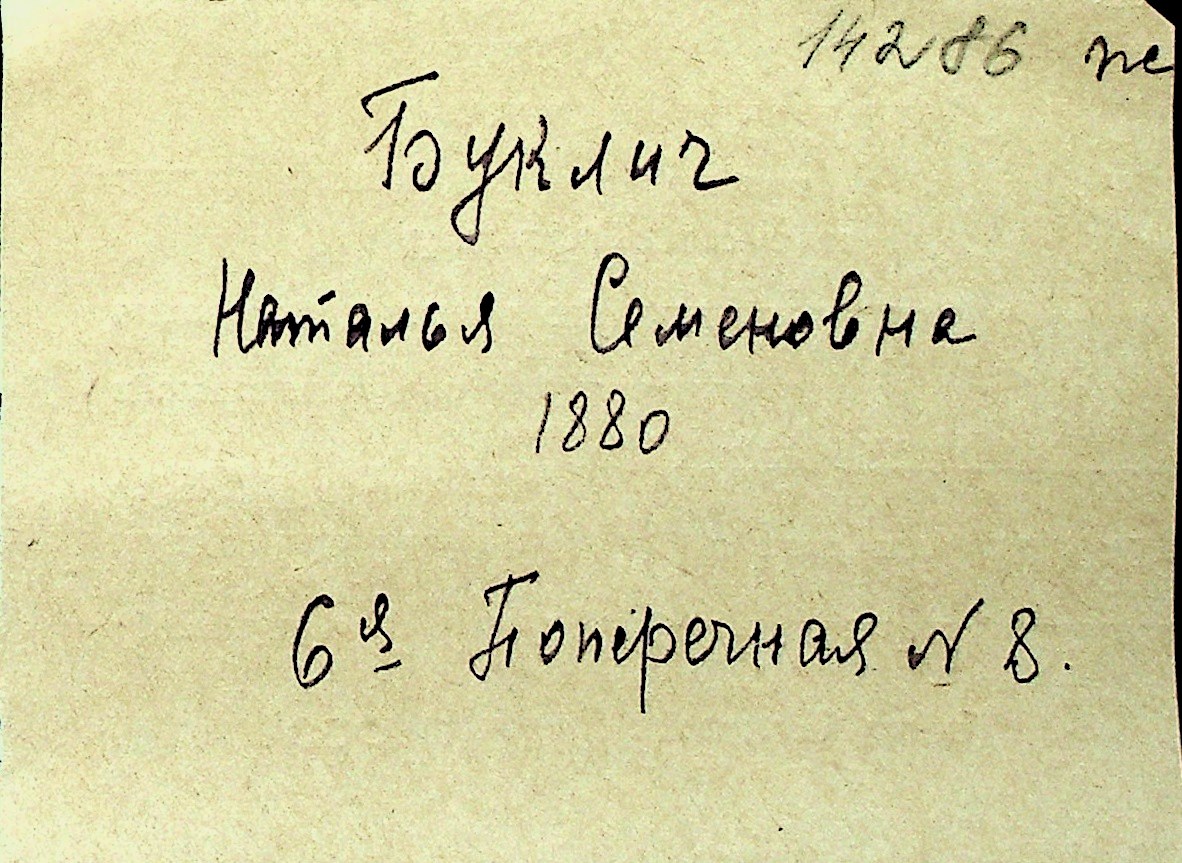 14286 же
Буклич
Наталья Семеновна
1880
6я Поперечная № 8.